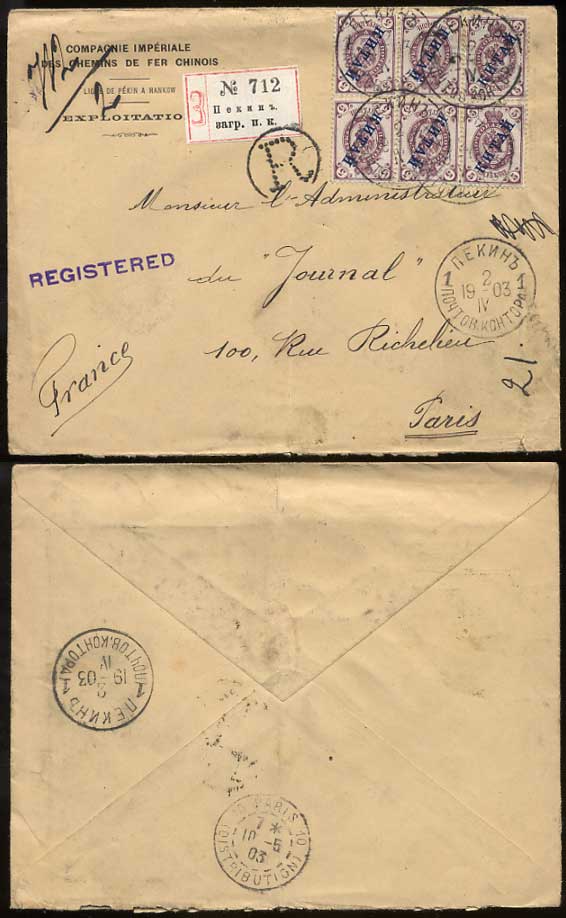 COMPAGNIE IMPÉRIALE
DES CHEMINS DE FER CHINOIS
LIGNE DE PÉKIN A HANKOW
EXPLOITATIO
№ 712
Пекинъ.
загр. п. к.
R
КИТАЙ КИТАЙ КИТАЙ
КИТАЙ КИТАЙ КИТАЙ
Monsieur l'Administrateur
REGISTERED
du "Journal"
ПЕКИНЪ
1 2 1
19-03
IV
ПОЧТОВ. КОНТОРА
100, Rue Richelieu
21.
France
Paris
ПЕКИНЪ
1 2 1
19-03
IV
ПОЧТОВ. КОНТОРА
10 PARIS 10
7 *
10 -5
03
(DISTRIBUTION)